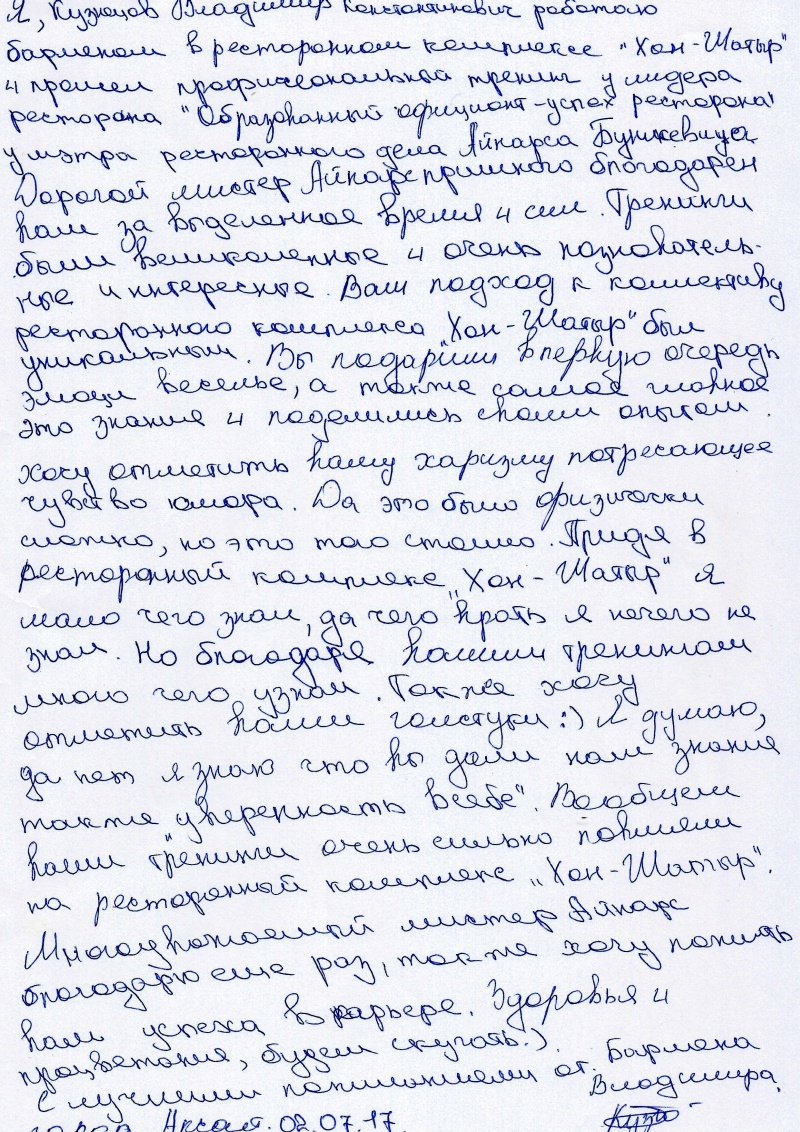 Я, Кузнецов Владимир Константинович работаю
барменом в ресторанном комплексе "Хан-Шатыр"
и прошел профисеональный тренинг у лидера
ресторана "Образованный официант-успех ресторана"
у мэтра ресторанного дела Айнарса Бункевица
Дорогой мистер Айнарс признного благодарен
вам за выделенное время и сил. Тренинги
были великолепные и очень познователь-
ные интересные. Ваш подход к коллективу
ресторанного комплекса "Хан-Шатыр" был
уникальным. Вы подарили в первую очередь
эмоци веселье, а также самое главное
это знания и поделились своим опытом.
хочу отметить вашу харизму потресающее
чувство юмора. Да это было физически
сложно, но это того стоило. Придя в
ресторанный комплекс "Хан-Шатыр" я
мало чего знал, да чего "врать я нечего не
знал. Но благодаря вашим тренингам
много чего узнал. Также хочу
отметить ваши галстуки :) Я думаю,
да нет я знаю что вы дали нам знания
также уверенность в себе". Вообщем
ваши тренинги очень сильно повлияли
на ресторанный комплекс "Хан-Шатыр".
Многоуважаемый мистер Айнарс
благодарю еще раз, также хочу пожилать
вам успеха в карьере. Здоровья и
процветания, будем скучать.)
С лучшими пожиланиями от. Бармена
Владимира.
город Аксай. 02.07.17.